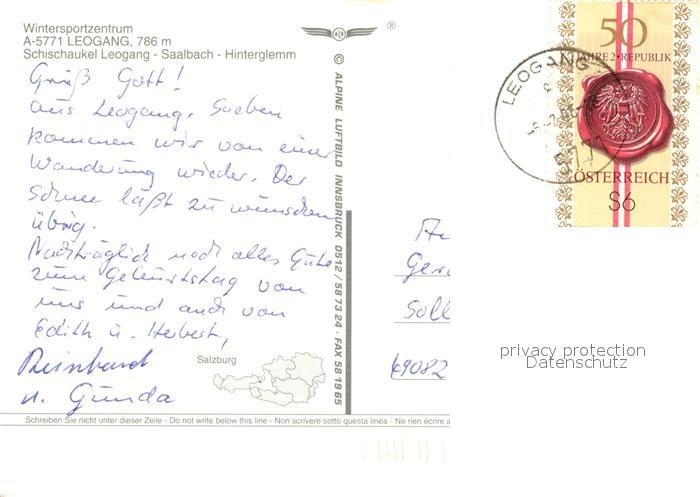 Wintersportzentrum
A-5771 LEOGANG, 786 m
Schischaukel Leogang - Saalbach - Hinterglemm
®
© ALPINE LUFTBILD INNSBRUCK 0512 / 58 73 24 · FAX 58 19 65
50
JAHRE 2 · REPUBLIK
ÖSTERREICH
S6
LEOGANG
Grüß Gott!
aus Leogang. Soeben
kommen wir von einer
Wanderung wieder. Der
Schnee läßt zu wünschen
übrig.
Nachträglich noch alles Gute
zum Geburtstag von
uns und auch von
Edith u. Herbert,
Reinhard
u. Gunda
Salzburg
69082
privacy protection
Datenschutz
Schreiben Sie nicht unter dieser Zeile - Do not write below this line - Non scrivere sotto questa linea - Ne rien écrire a